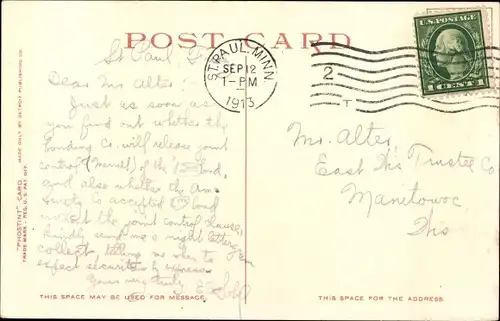 POST CARD
ST. PAUL. MINN.
SEP 12
1-PM
1913
2
T
U.S. POSTAGE
1 CENT 1
St Paul,
Dear Mr Alter:-
Just as soon as
you find out whether the
Bonding Co. will release joint
control of the bond,
and also whether the Am
Surety Co accepted bond
without the joint control clause,
kindly send me a night lettergram
collect, telling me when to
expect securities by express
Yours very truly
Mr. Alter,
East Wis Trustee Co
Manitowoc
Wis
"PHOSTINT" CARD MADE ONLY BY DETROIT PUBLISHING CO.
TRADE MARK, REG. U.S. PAT. OFF.
THIS SPACE MAY BE USED FOR MESSAGE.
THIS SPACE FOR THE ADDRESS.